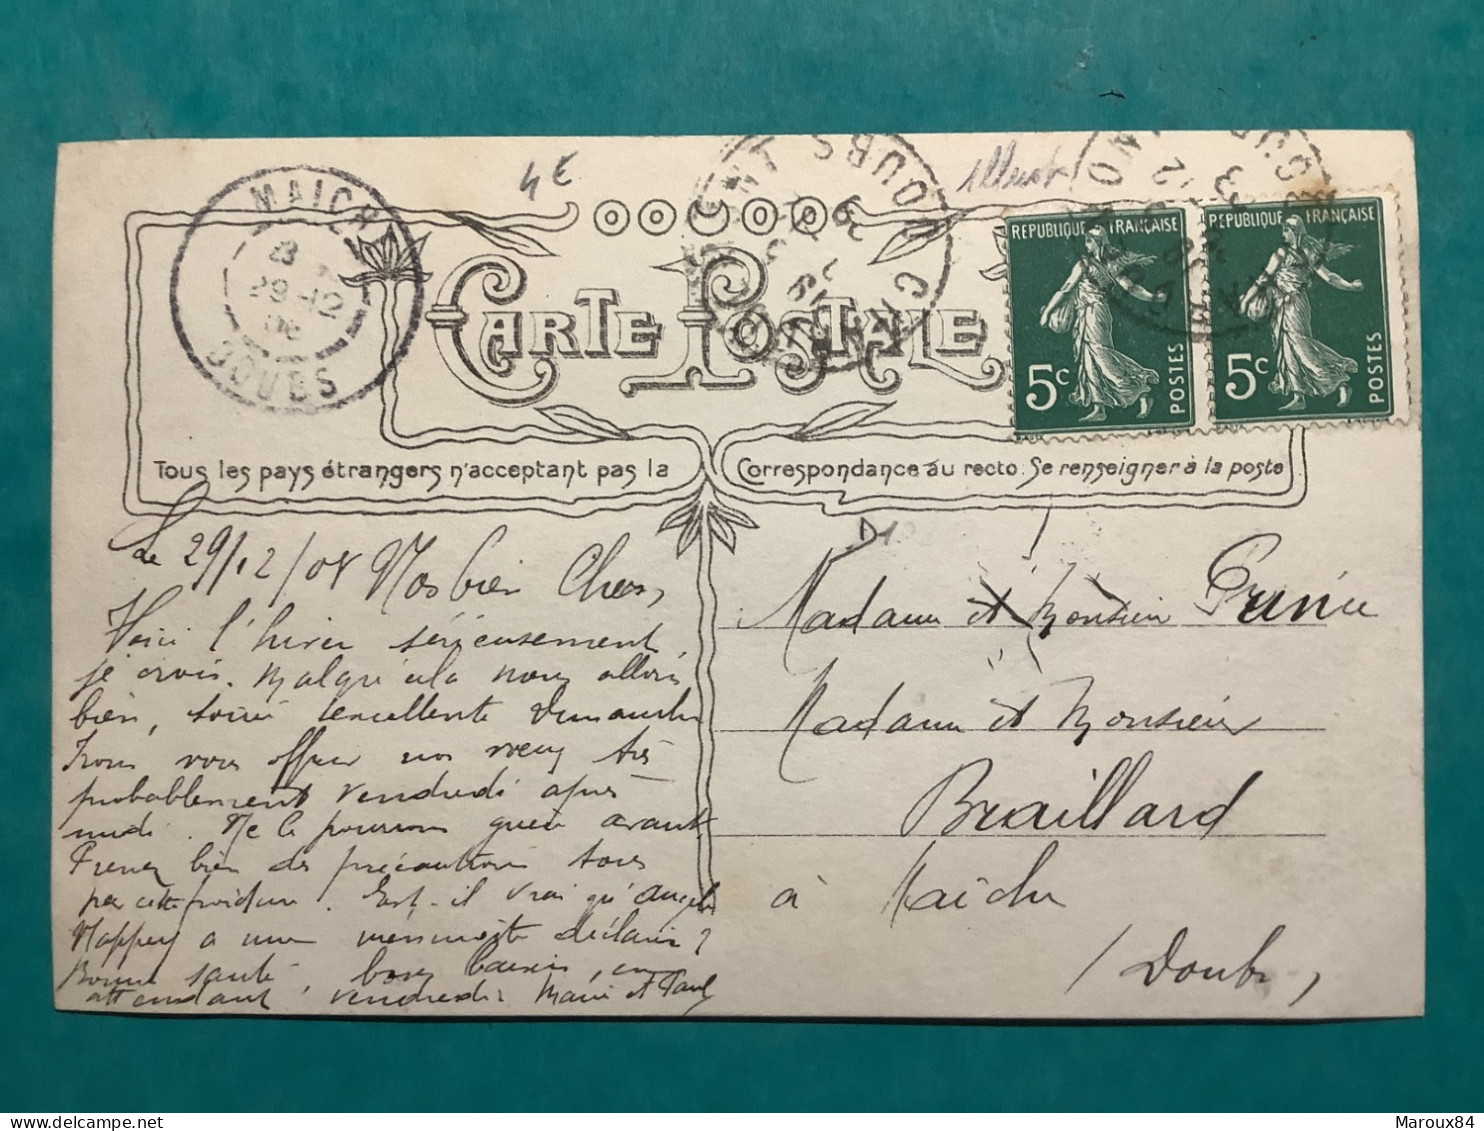 4 €
illust
MAICHE
8
29 -12
08
DOUBS
DOUBS
RÉPUBLIQUE FRANÇAISE
5c
POSTES
RÉPUBLIQUE FRANÇAISE
5c
POSTES
CARTE POSTALE
Tous les pays étrangers n'acceptant pas la Correspondance au recto. Se renseigner à la poste
Le 29/12/08 Nos bien Chers,
Voici l'hiver sérieusement
je crois. Malgré cela nous allons
bien, soirée excellente Dimanche
Irons vous offrir nos vœux très
probablement vendredi après
midi. Ne le pourrons guère avant
Prenez bien des précautions tous
par cette froidure. Est-il vrai qu'Angèle
Mappey a une méningite déclarée ?
Bonne santé, bons baisers, en
attendant vendredi Marie et Paul
Madame et Monsieur
Madame et Monsieur
Braillard
à Maîche
/Doubs,
Maroux84